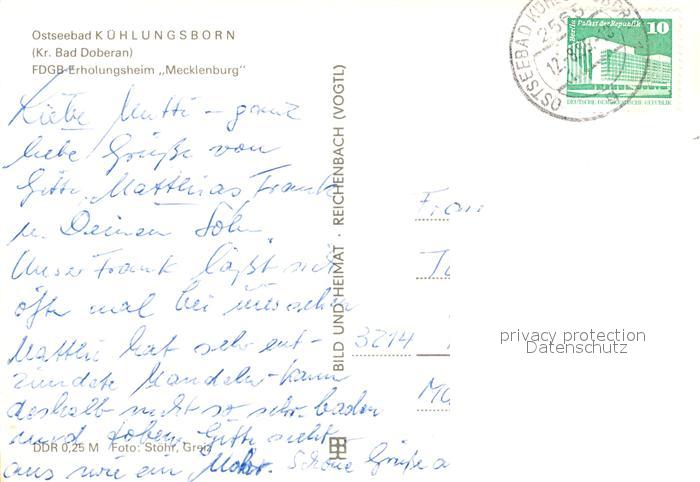 Ostseebad KÜHLUNGSBORN
(Kr. Bad Doberan)
FDGB-Erholungsheim „Mecklenburg"
Liebe Mutti – ganz
liebe Grüße von
Gitte, Matthias Frank
u. Deinem Sohn
Unser Frank läßt sich
öfter mal bei uns sehen
Matthi hat sehr ent-
zündete Mandeln – kann
deshalb nicht so sehr baden
und toben. Gitte sieht
aus wie ein Mohr. Schöne Grüße a
DDR 0,25 M Foto: Stöhr, Greiz
BILD UND HEIMAT · REICHENBACH (VOGTL)
OSTSEEBAD KÜHLUNGSBORN
2565
Berlin, Palast der Republik
10
DEUTSCHE DEMOKRATISCHE REPUBLIK
Frau
3214
privacy protection
Datenschutz